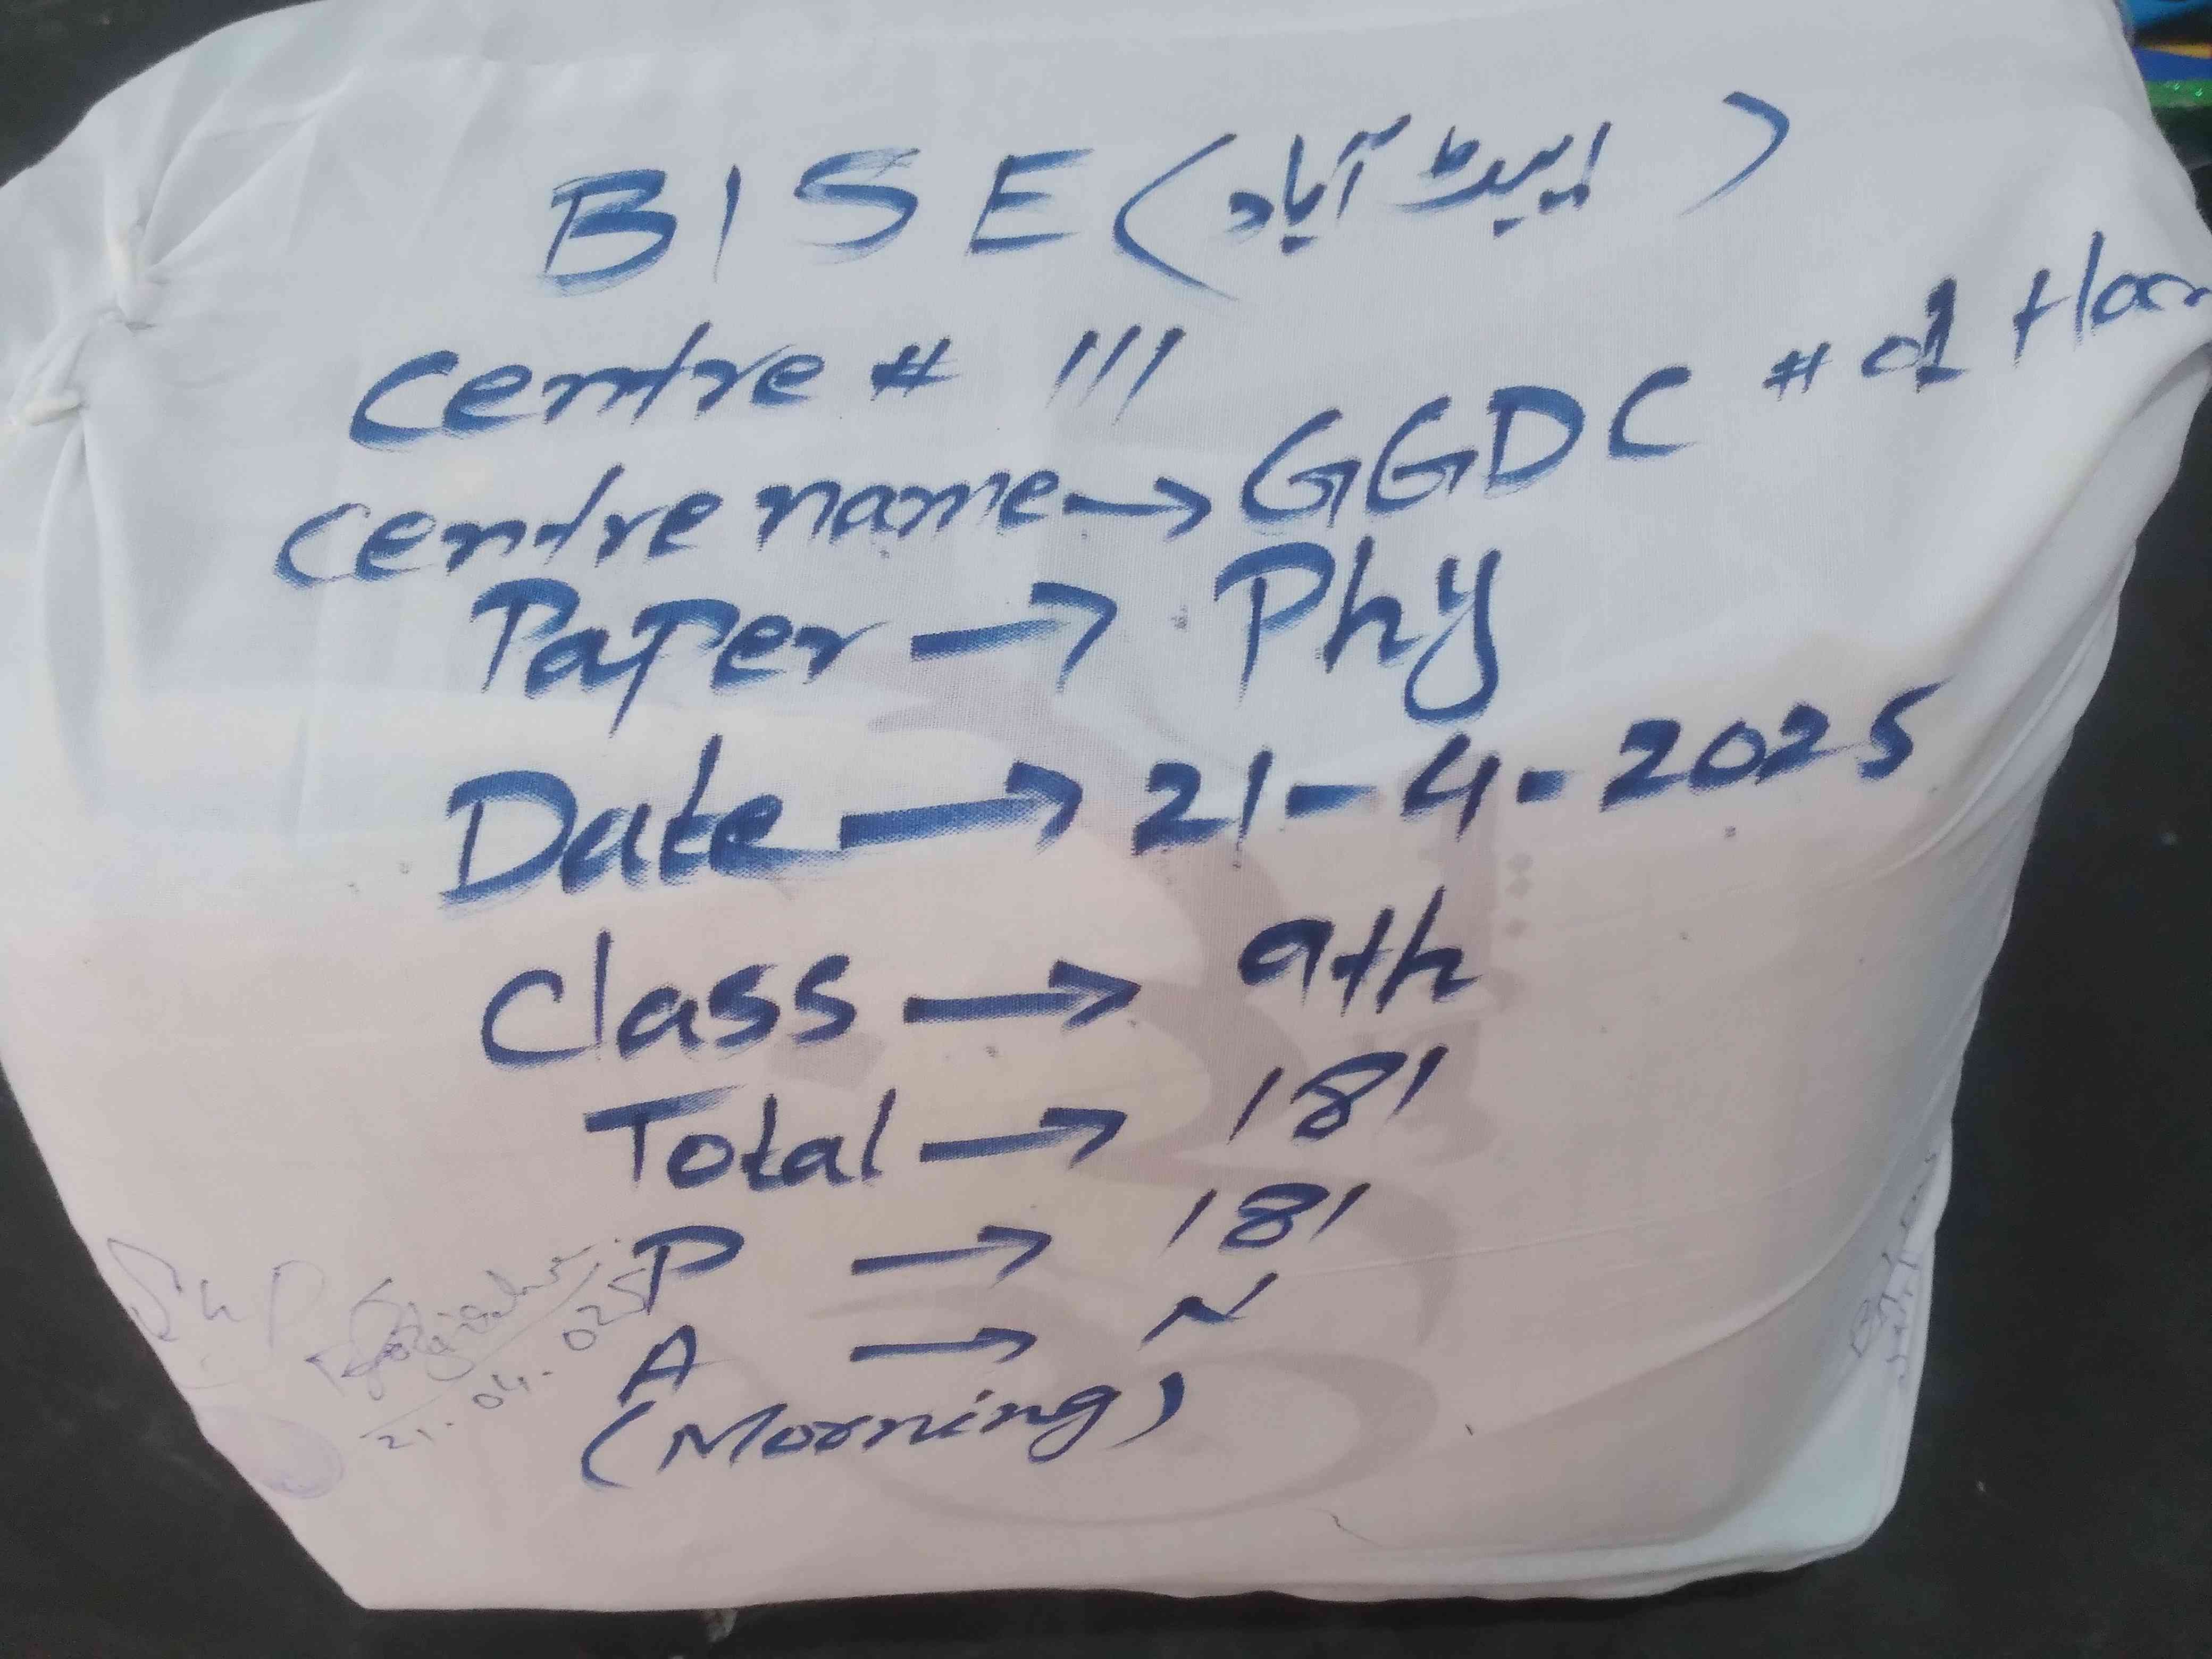 BISE (ایبٹ آباد)
Centre # 111
Centre name → GGDC # 01
Paper → Phy
Date → 21-4-2025
Class → 9th
Total → 181
P → 181
A → ~
(Morning)
Sup
21.04.025